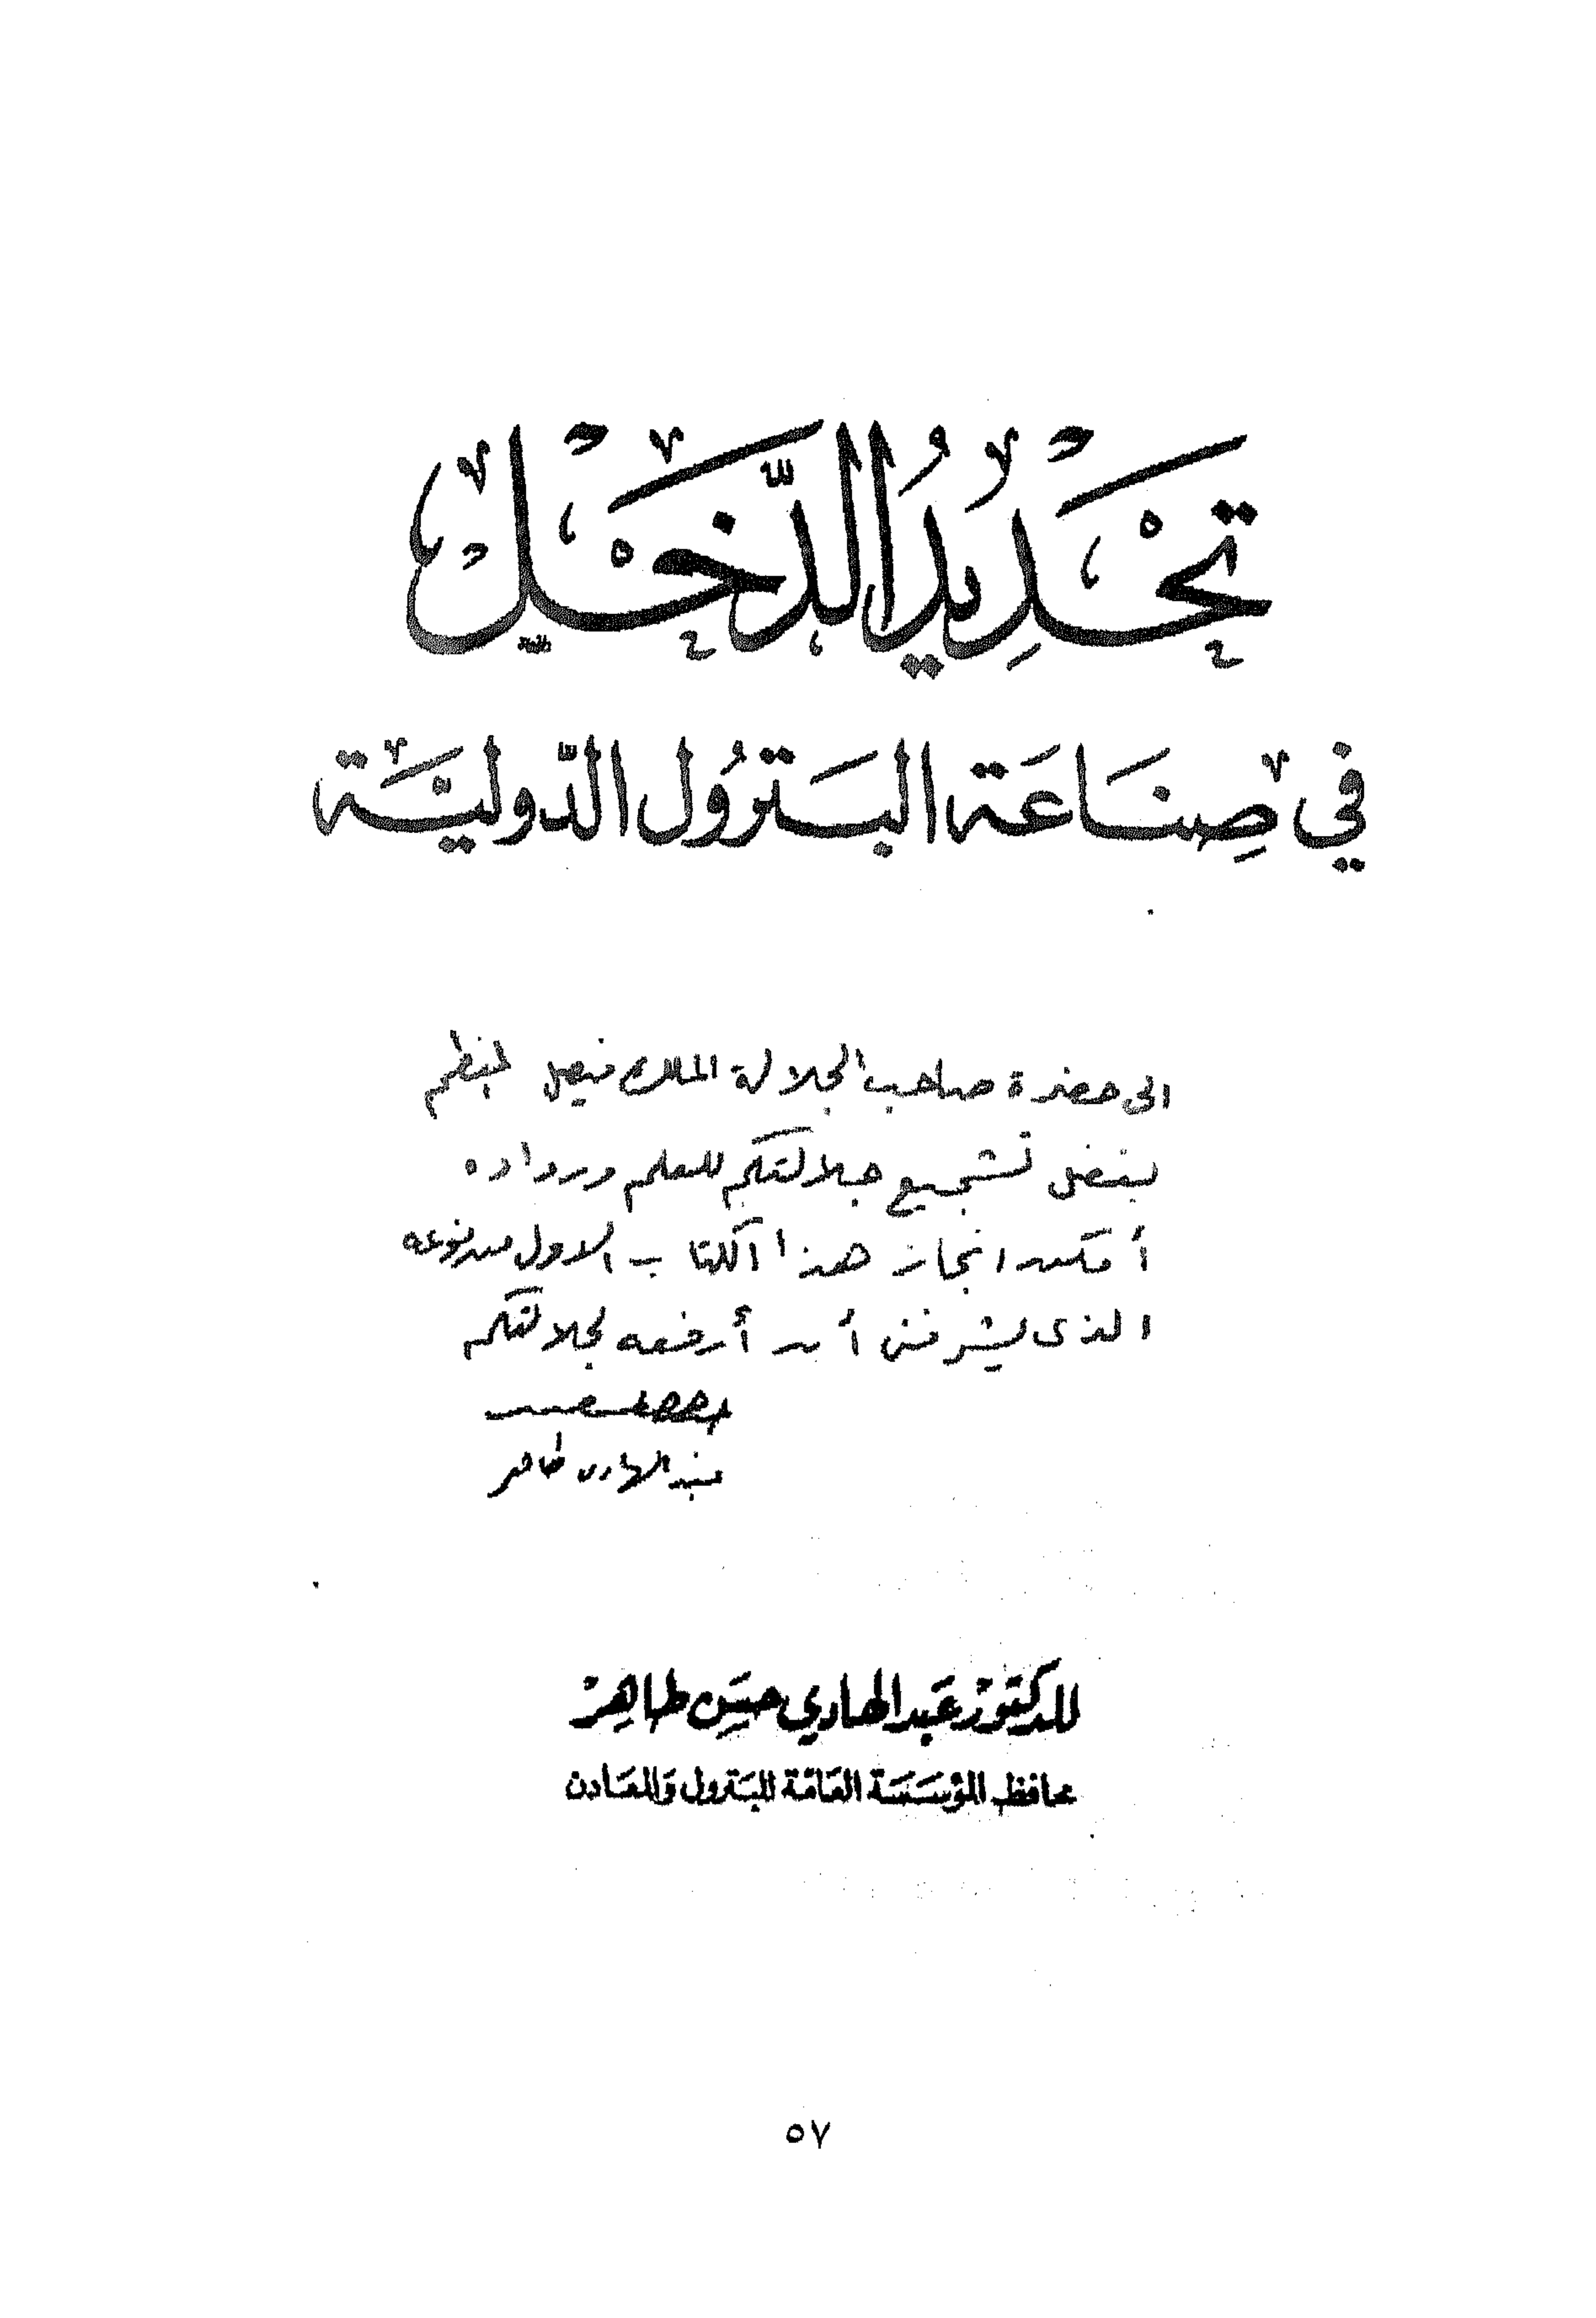 تحديد الدخل
في صناعة البترول الدولية
الى حضرة صاحب الجلالة الملك فيصل المعظم
بفضل تشجيع جلالتكم للعلم ورواده
أمكن انجاز هذا الكتاب الاول من نوعه
الذى يشرفنى أن أرفعه لجلالتكم
عبد الهادى طاهر
للدكتور عبد الهادي حسن طاهر
محافظ المؤسسة العامة للبترول والمعادن
٥٧